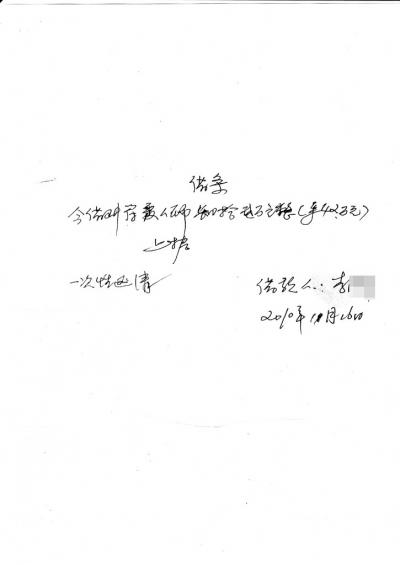 借条
今借到 人民币 肆拾贰万元整(¥42万元)
一次性还清
借款人：李
2010年 月16日